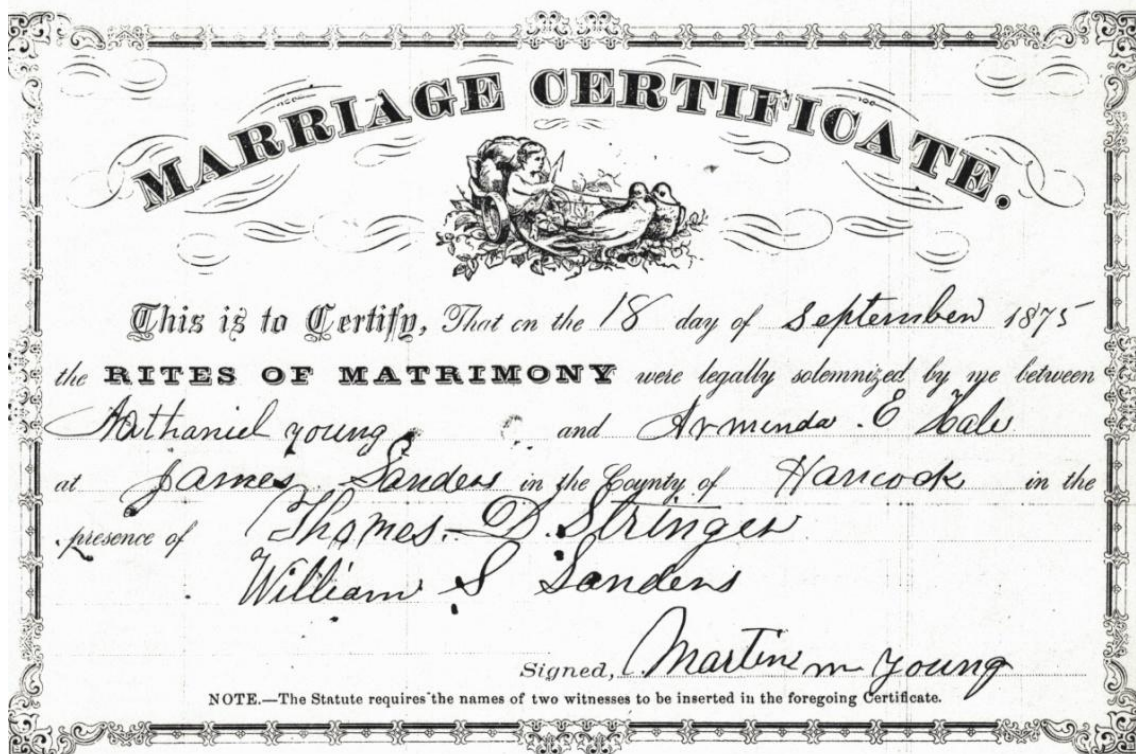 MARRIAGE CERTIFICATE.
This is to Certify, That on the 18 day of September 1875
the RITES OF MATRIMONY were legally solemnized by me between
Nathaniel young and Armenda . E Hale
at James Sanders in the County of Hancock in the
presence of Thomas. D. Stringer
William S Sanders
Signed, Martin m young
NOTE.—The Statute requires the names of two witnesses to be inserted in the foregoing Certificate.